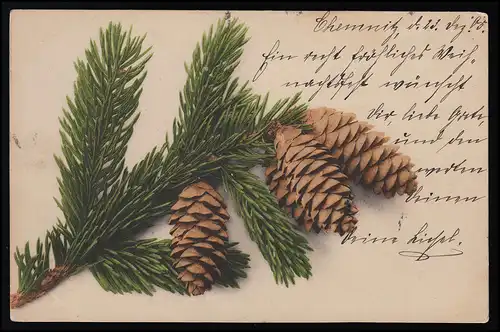 Chemnitz, d. 23. Dez. 05.
Ein recht fröhliches Weih-
nachtsfest wünscht
Dir, liebe
und den
werten
Deinen
Deine Liesel.